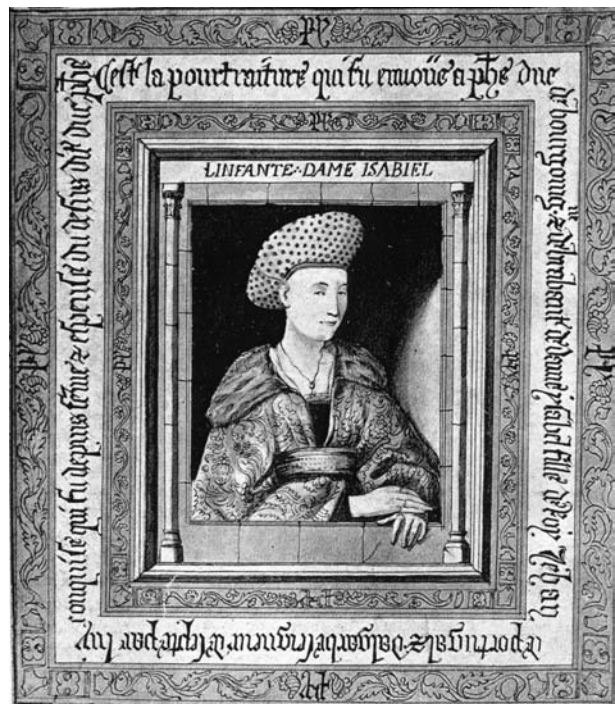 Cest la pourtraiture qui fu envoiie a phe duc
de bourgoingne & de brabant de dame ysabel fille de roy Jehan
de portugal & dalgarbe seigneur de septe par luy
conquise qui fu depuis feme & espeuse du dessus dit duc phe
LINFANTE·DAME ISABIEL